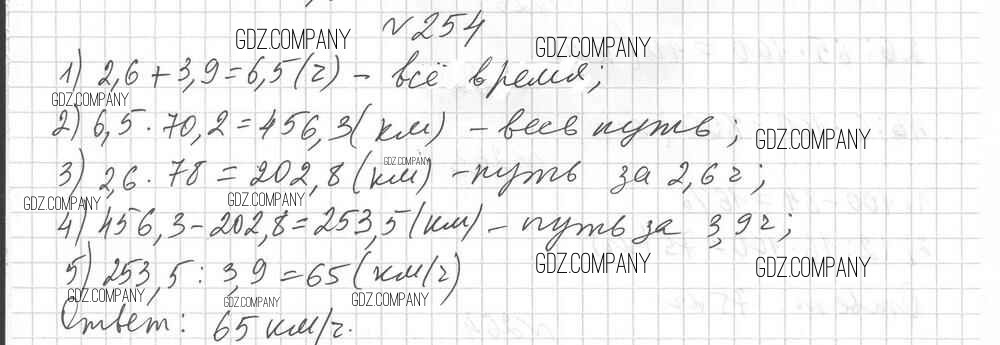 №254
1) 2,6 + 3,9 = 6,5 (ч) – всё время;
2) 6,5 · 70,2 = 456,3 (км) – весь путь;
3) 2,6 · 78 = 202,8 (км) – путь за 2,6 ч;
4) 456,3 – 202,8 = 253,5 (км) – путь за 3,9 ч;
5) 253,5 : 3,9 = 65 (км/ч)
Ответ: 65 км/ч.
GDZ.COMPANY
GDZ.COMPANY
GDZ.COMPANY
GDZ.COMPANY
GDZ.COMPANY
GDZ.COMPANY
GDZ.COMPANY
GDZ.COMPANY
GDZ.COMPANY
GDZ.COMPANY
GDZ.COMPANY
GDZ.COMPANY